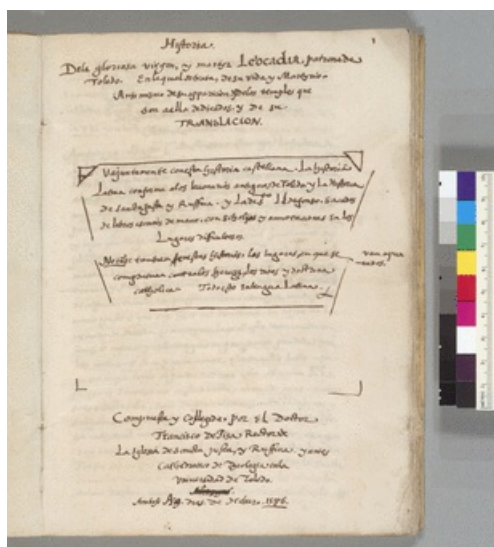 Historia.
Dela gloriosa virgen, y martyr Leocadia. patrona de
Toledo. En la qual se trata, de su vida y Martyrio.
Ansi mesmo de su apparicion, y delos temples que
son a ella dedicados, y de su
TRANSLACION.
Va juntamente con esta hystoria castellana. La hystoria
Latina conforme a los breviarios antiguos de Toledo y La historia
de sancta Justa y Ruffina. y La de S. Illefonso. sacadas
de libros de mano. con scholios y annotaciones en los
Lugares difficultosos.
en que se
van aqui
catholica. Todo esto en lengua Latina.
Compuesta y Collegida por El Doctor
Francisco de Pisa Rector de
La iglesia de sancta Justa, y Ruffina. y
Cathedratico de
Universidad de Toledo.
1596.